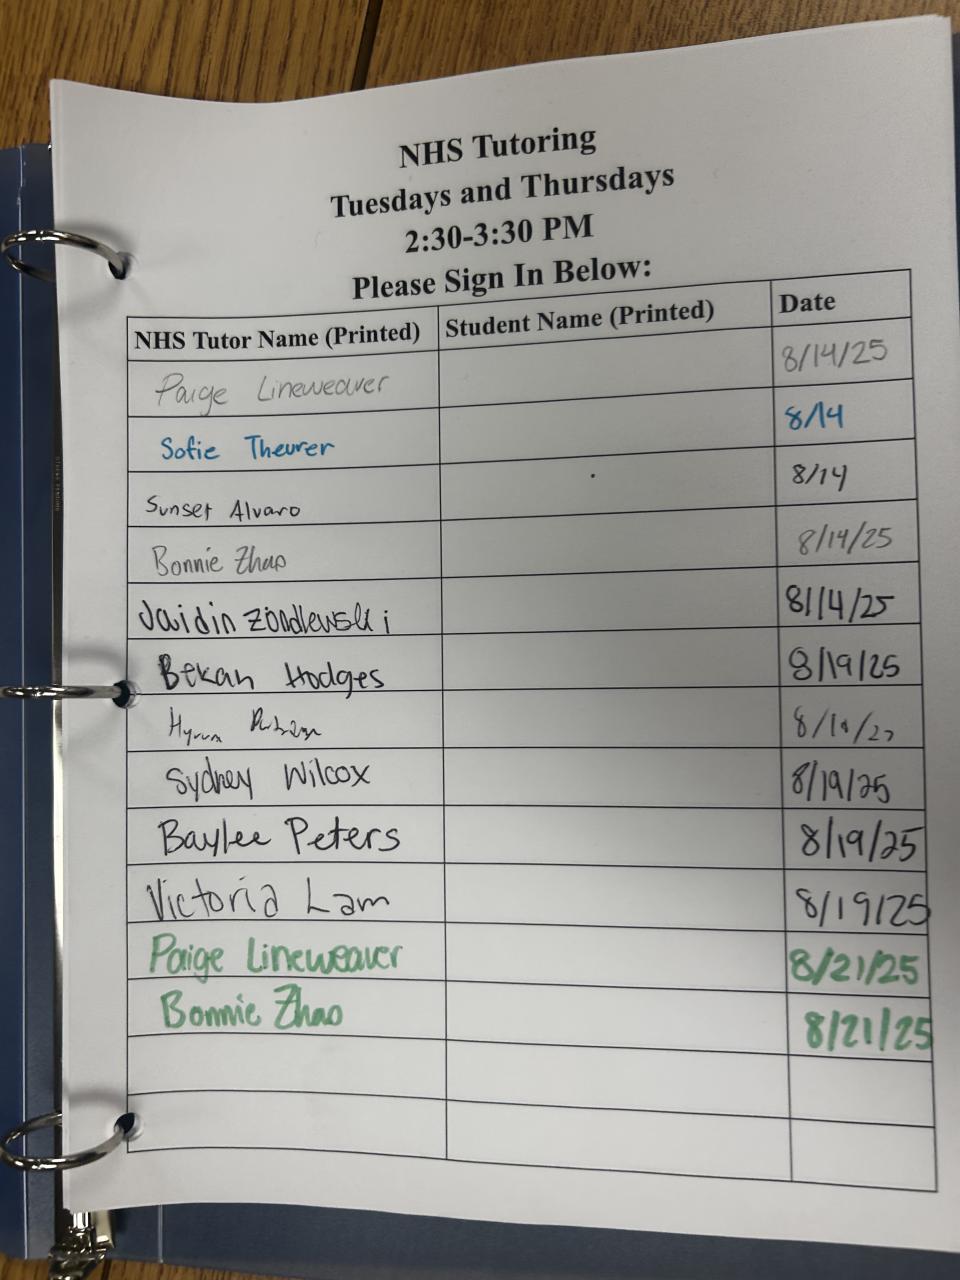 NHS Tutoring
Tuesdays and Thursdays
2:30-3:30 PM
Please Sign In Below:
NHS Tutor Name (Printed) Student Name (Printed) Date
Paige Lineweaver 8/14/25
Sofie Theurer 8/14
Sunset Alvaro 8/14
Bonnie Zhao 8/14/25
Jaidin 8/14/25
Bekah Hodges 8/19/25
Hyrum
Sydney Wilcox 8/19/25
Baylee Peters 8/19/25
Victoria Lam 8/19/25
Paige Lineweaver 8/21/25
Bonnie Zhao 8/21/25